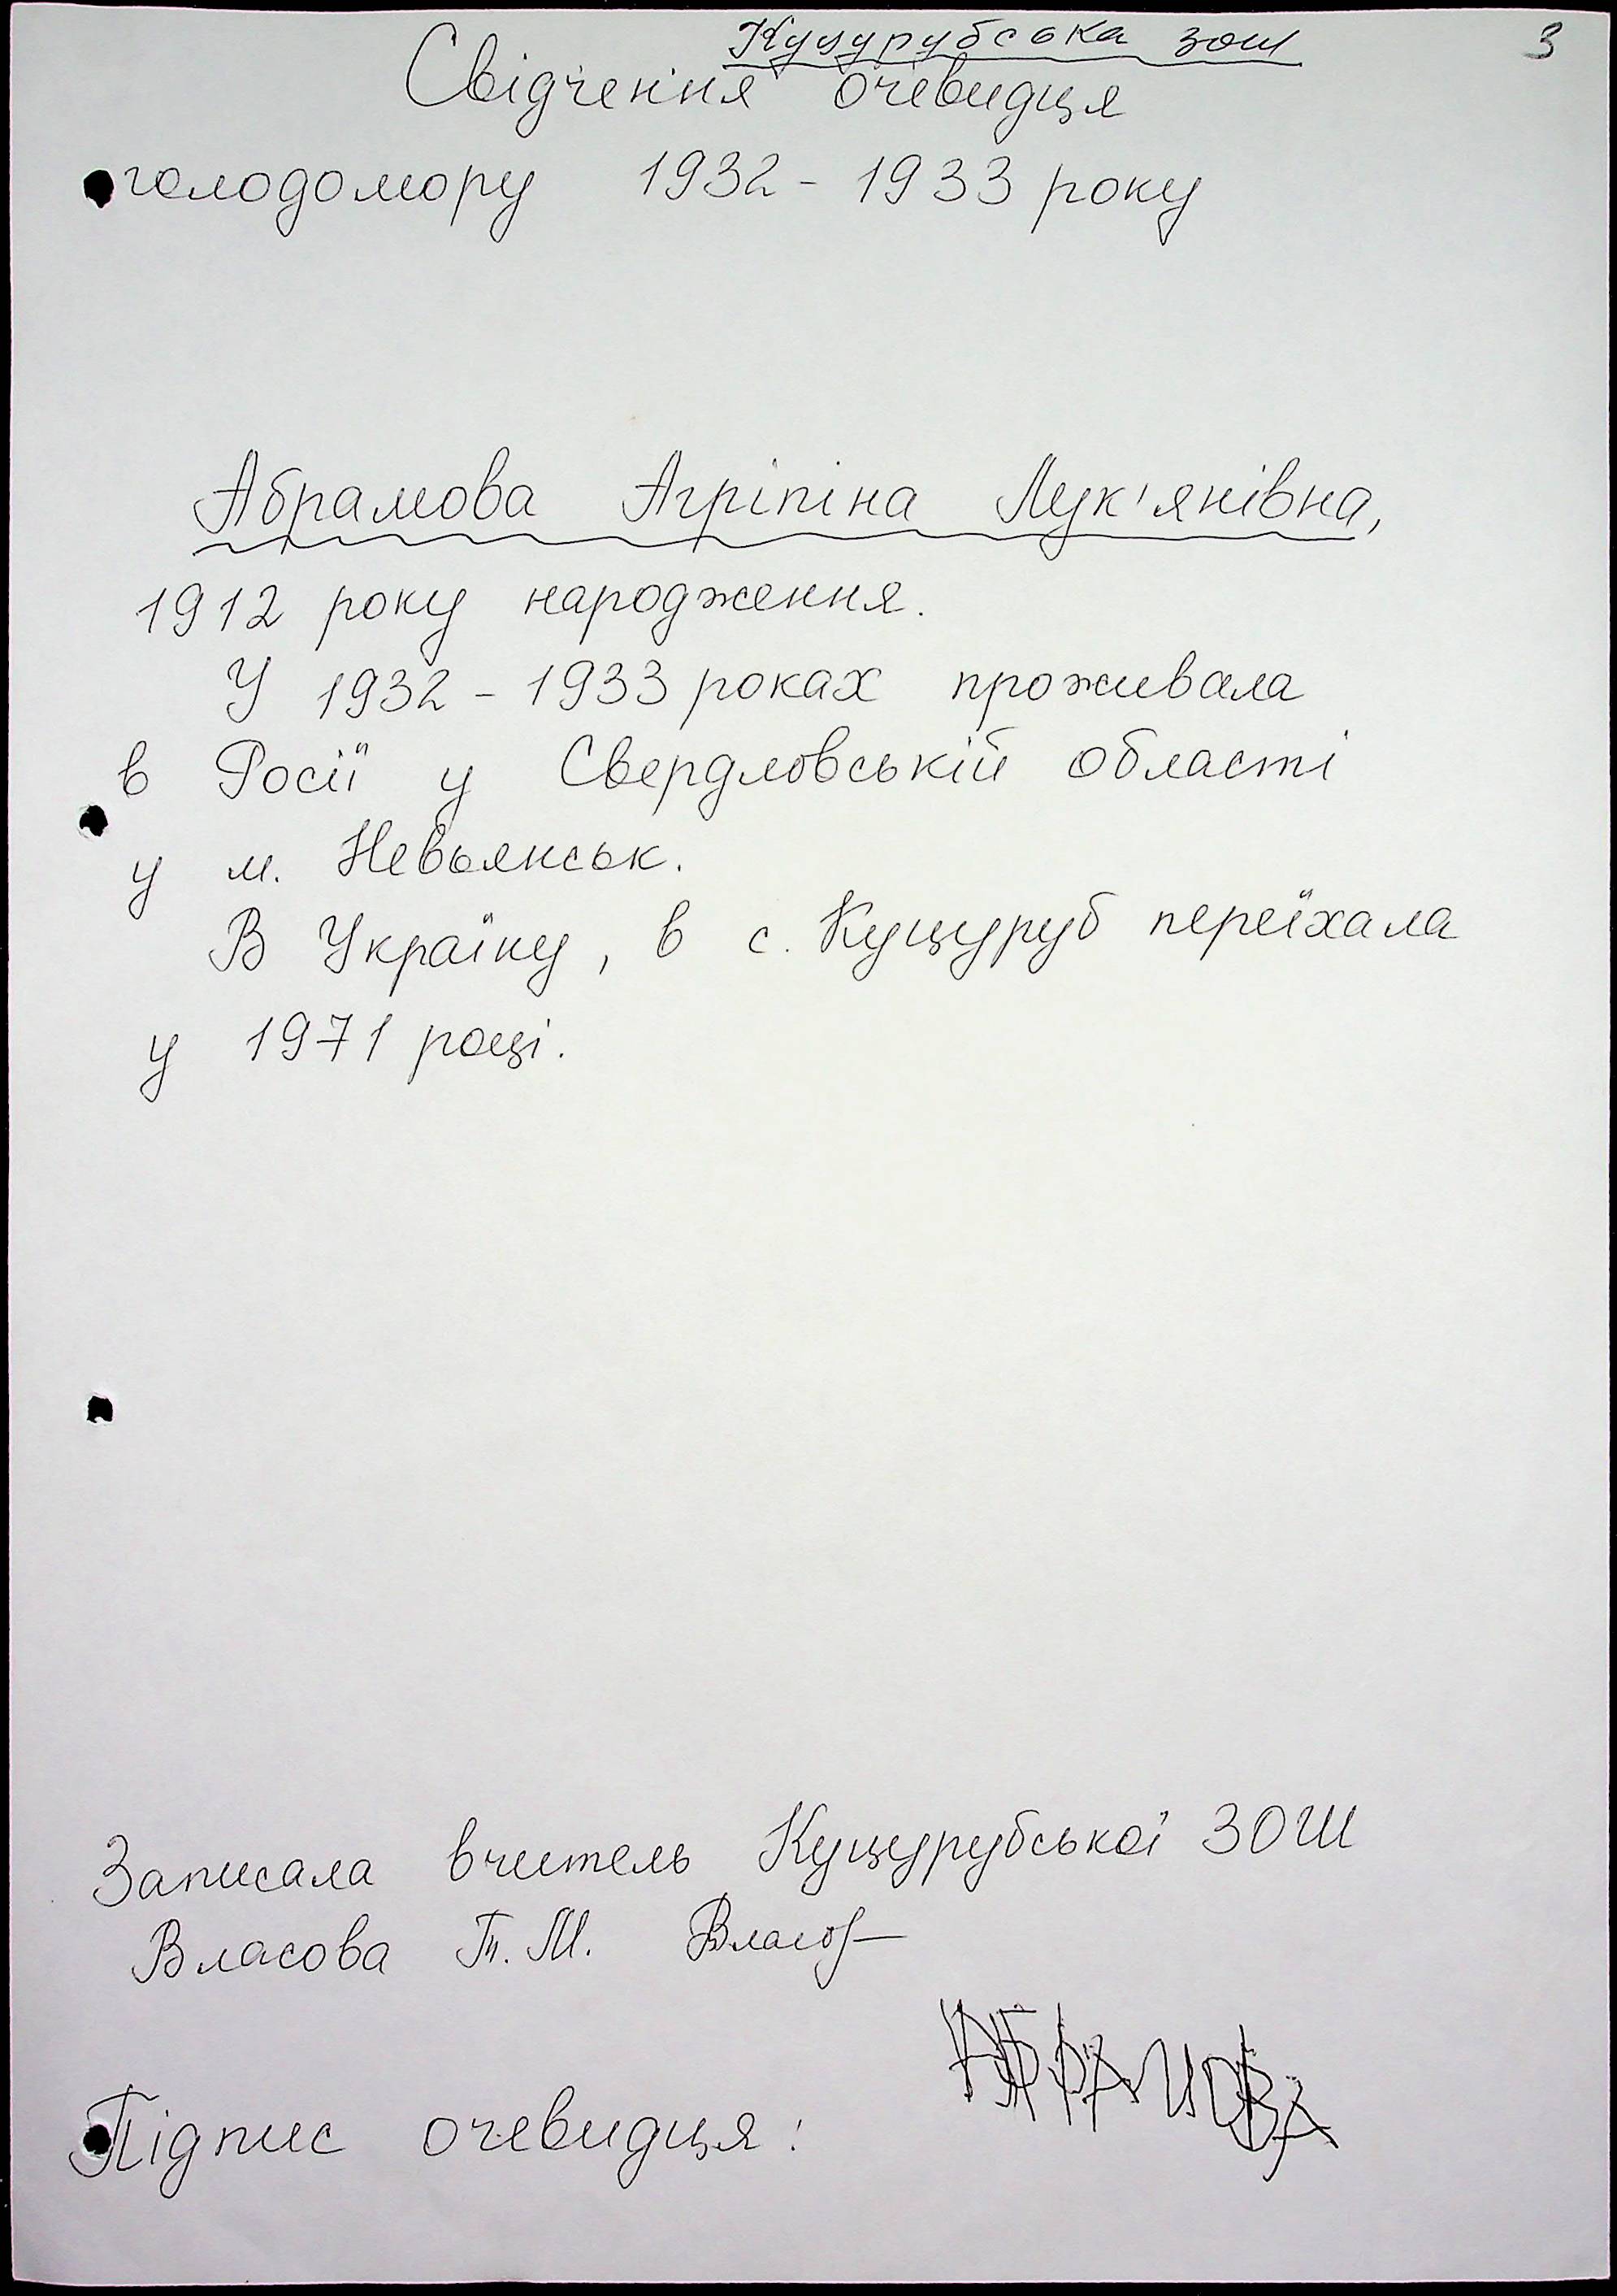 Куцурубська зош 3
Свідчення очевидця
голодомору 1932 - 1933 року
Абрамова Агріпіна Лук'янівна,
1912 року народження.
У 1932 - 1933 роках проживала
в Росії у Свердловській області
у м. Невьянськ.
В Україну, в с. Куцуруб переїхала
у 1971 році.
Записала вчитель Куцурубської ЗОШ
Власова Т. М. Власов
АБРАМОВА
Підпис очевидця: